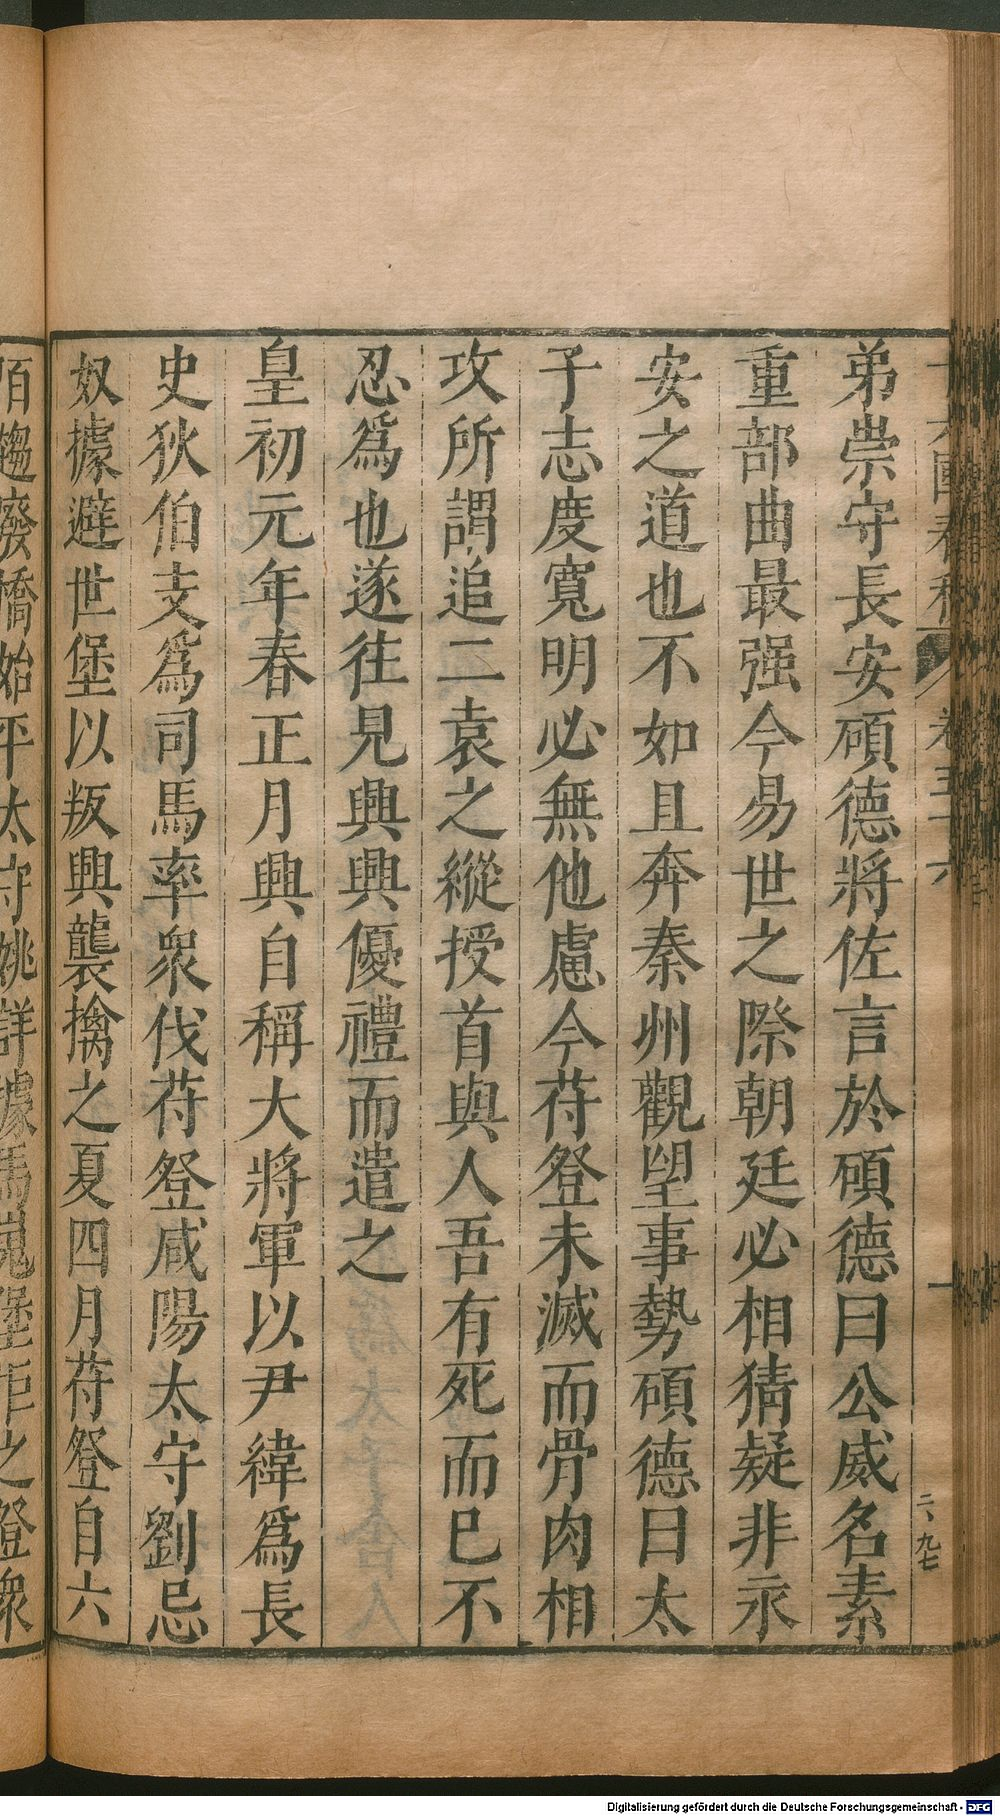 弟崇守長安碩德將佐言於碩德曰公威名素
重部曲最强今易世之際朝廷必相猜疑非永
安之道也不如且奔秦州觀望事勢碩德曰太
子志度寬明必無他慮今苻登未滅而骨肉相
攻所謂追二袁之縱授首與人吾有死而已不
忍爲也遂往見興興優禮而遣之
皇初元年春正月興自稱大將軍以尹緯爲長
史狄伯支爲司馬率衆伐苻登咸陽太守劉忌
奴據避世堡以叛興襲擒之夏四月苻登自六
陌趨廢橋始平太守姚詳據馬嵬堡拒之登衆
二、九七
Digitalisierung gefördert durch die Deutsche Forschungsgemeinschaft - DFG